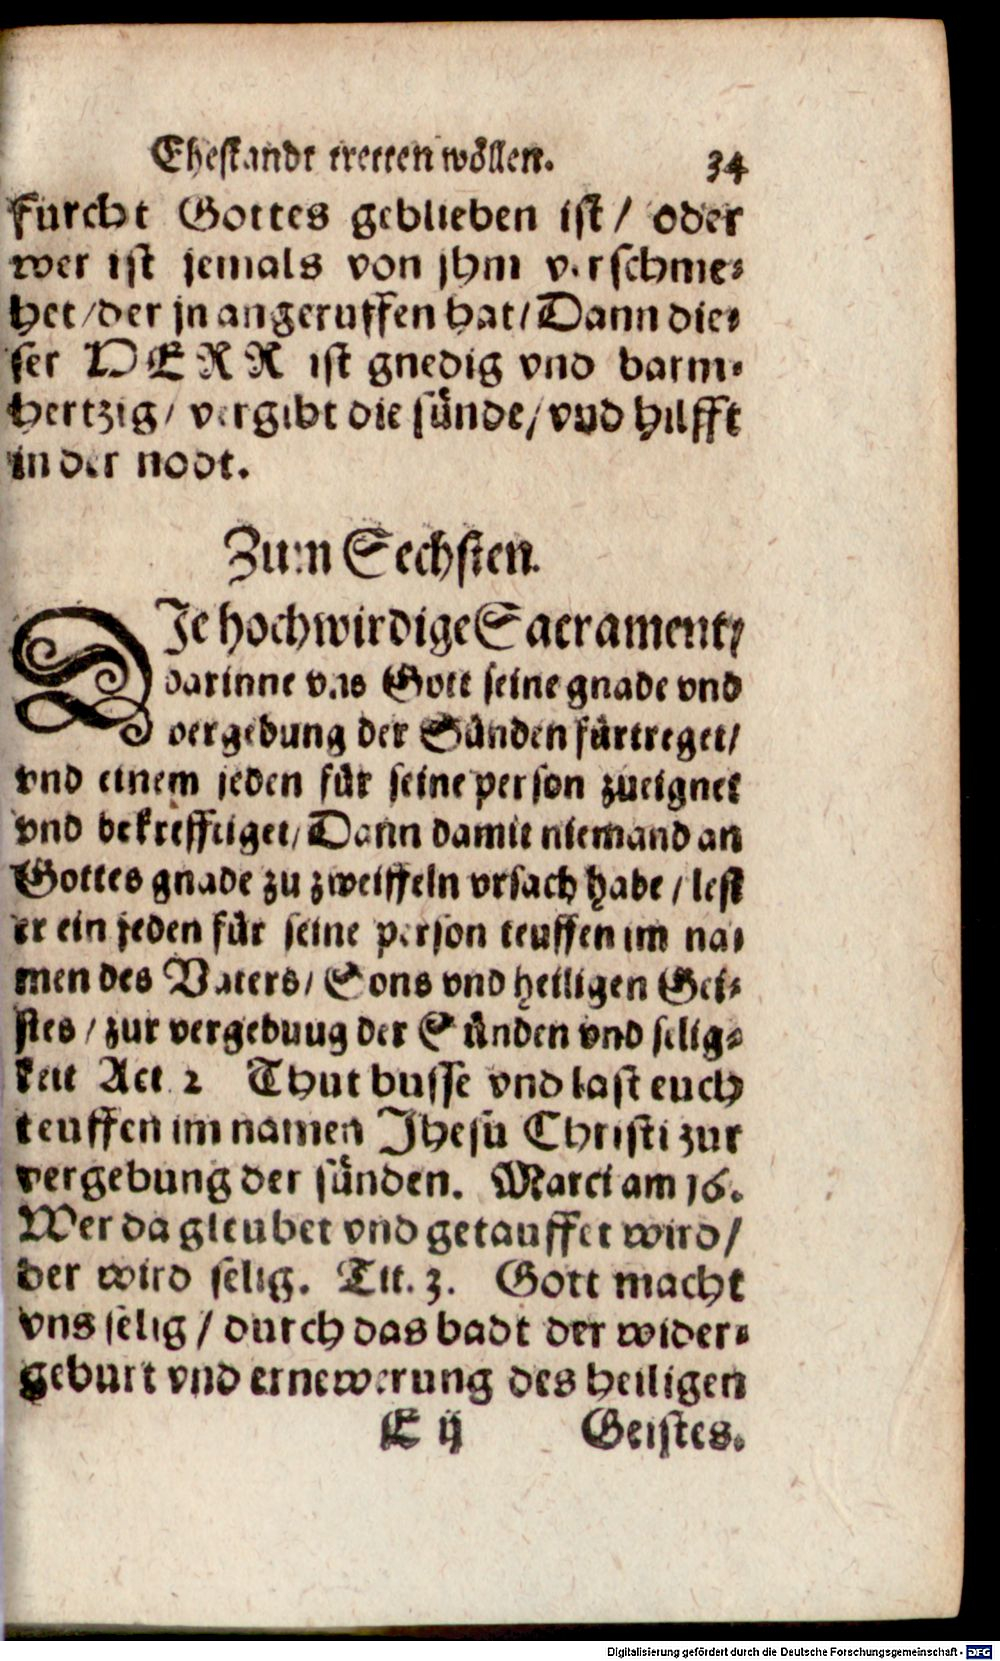 Ehestandt tretten wöllen. 34
furcht Gottes geblieben ist / oder
wer ist jemals von jhm verschme-
het / der jn angeruffen hat / Dann die-
ser HERR ist gnedig vnd barm-
hertzig / vergibt die sünde / vnd hilfft
in der nodt.
Zum Sechsten.
DJe hochwirdige Sacrament /
darinne vns Gott seine gnade vnd
vergebung der Sünden fürtreget /
vnd einem jeden für seine person zueignet
vnd bekrefftiget / Dann damit niemand an
Gottes gnade zu zweiffeln vrsach habe / lest
er ein jeden für seine person teuffen im na-
men des Vaters / Sons vnd heiligen Gei-
stes / zur vergebuug der Sünden vnd selig-
keit Act. 2 Thut busse vnd last euch
teuffen im namen Jhesu Christi zur
vergebung der sünden. Marci am 16.
Wer da gleubet vnd getauffet wird /
der wird selig. Tit. 3. Gott macht
vns selig / durch das badt der wider-
geburt vnd ernewerung des heiligen
E ij Geistes.
Digitalisierung gefördert durch die Deutsche Forschungsgemeinschaft - DFG